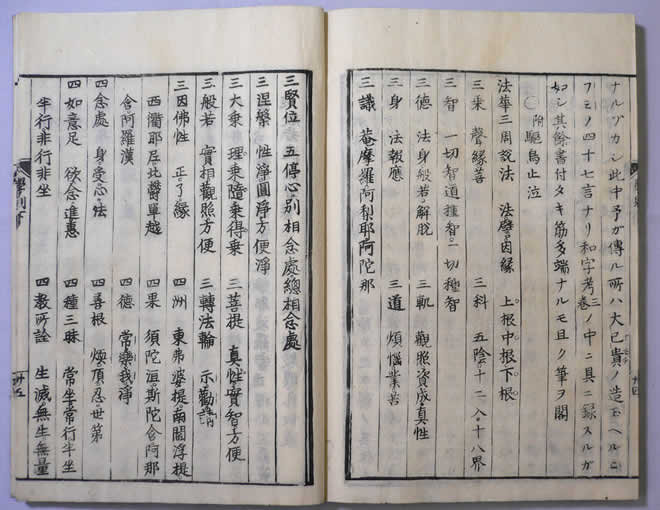 ナルベカシ此中予ガ傳ル所ハ大已貴ノ造玉ヘルヒ
フミノ四十七言ナリ和字考三巻ノ中ニ具ニ録スルガ
如シ其餘書付タキ筋多端ナルモ且ク筆ヲ閣
〇附驅烏止泣
法華三周説法 法譬因縁 上根中根下根
三乗 聲縁菩 三科 五陰十二入十八界
三智 一切智道種智一切種智
三德 法身般若解脱 三軌 觀照資成真性
三身 法報應 三道 煩惱業苦
三識 菴摩羅阿梨耶阿陀那
三賢位 五停心別相念處總相念處
三涅槃 性淨圓淨方便淨
三大乗 理乗隨乗得乗 三菩提 真性實智方便
三般若 實相觀照方便 三轉法輪 示勸證
三因佛性 正了縁 四洲 東弗婆提南閻浮提
西衢耶尼北欝單越 四果 須陀洹斯陀含阿那
含阿羅漢 四德 常樂我淨
四念處 身受心法 四善根 煗頂忍世第
四如意足 欲念進慧 四種三昧 常坐常行半坐
半行非行非坐 四教所詮 生滅無生無量
廿五